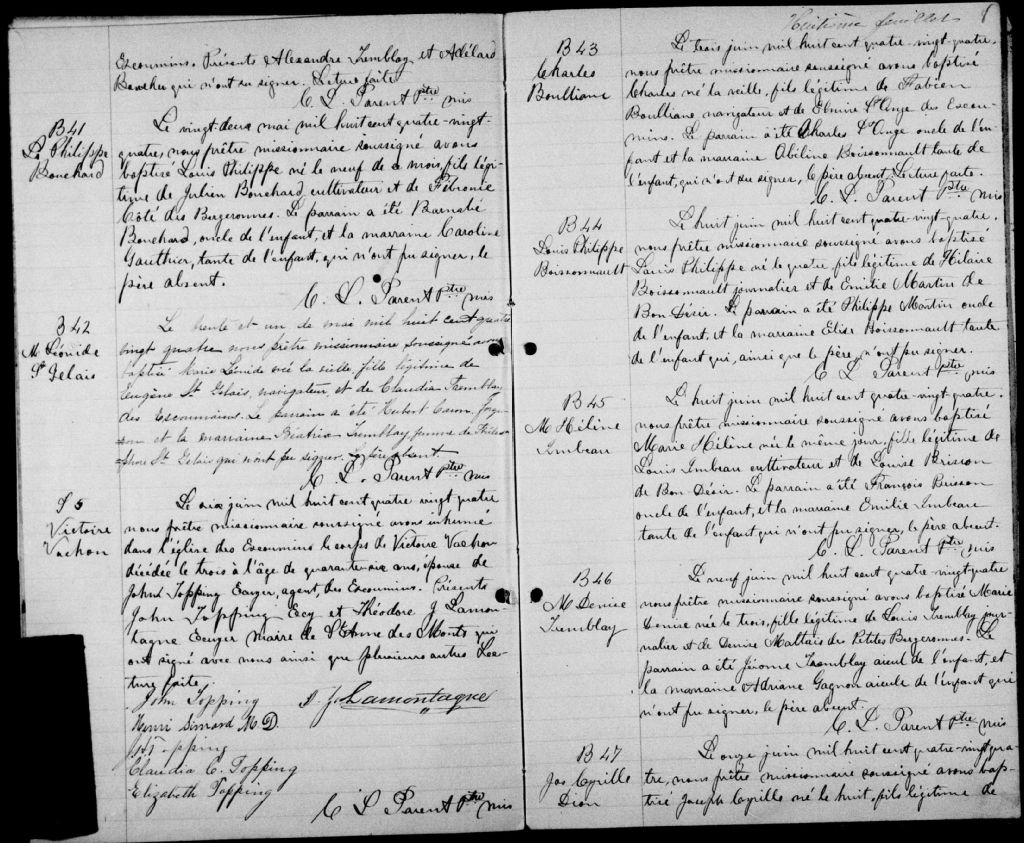 Escoumins. Présents Alexandre Tremblay et Adélard
Boucher qui n'ont su signer. Lecture faite
C. L. Parent Ptre mis
B 41
Ls Philippe
Bouchard
Le vingt-deux mai mil huit cent quatre-vingt-
quatre, nous prêtre missionnaire soussigné avons
baptisé Louis Philippe né le neuf de ce mois, fils légi-
time de Julien Bouchard cultivateur et de Fébronie
Côté des Bergeronnes. Le parrain a été Barnabé
Bouchard, oncle de l'enfant, et la marraine Caroline
Gauthier, tante de l'enfant, qui n'ont pu signer, le
père absent.
C. L. Parent Ptre mis
B 42
M Léonide
St Gelais
Le trente et un de mai mil huit cent quatre
vingt quatre nous prêtre missionnaire soussigné avons
baptisé Marie Léonide née la veille, fille légitime de
Eugène St Gelais, navigateur, et de Claudia Tremblay
des Escoumins. Le parrain a été Hubert Caron, forge-
ron et la marraine Béatrix Tremblay femme de
St Gelais qui n'ont pu signer. Le père absent
C. L. Parent Ptre mis
S 5
Victoire
Vachon
Le six juin mil huit cent quatre vingt quatre
nous prêtre missionnaire soussigné avons inhumé
dans l'église des Escoumins le corps de Victoire Vachon
décédée le trois à l'âge de quarante-six ans, épouse de
John Topping Ecuyer, agent, des Escoumins. Présents
John Topping Ecy et Théodore J Lamon-
tagne Ecuyer Maire de Ste Anne des Monts qui
ont signé avec nous ainsi que plusieurs autres Lec-
ture faite.
John Topping
J. Lamontagne
Henri Simard M D
Topping
Claudia C. Topping
Elizabeth Topping
C L Parent Ptre mis
Huitième feuillet
B 43
Charles
Boulliane
Le trois juin mil huit cent quatre-vingt-quatre.
nous prêtre missionnaire soussigné avons baptisé
Charles né la veille, fils légitime de Fabien
Boulliane navigateur et de Elmire St Onge des Escou-
mins. Le parrain a été Charles St Onge oncle de l'en-
fant et la marraine Abiline Boissonnault tante de
l'enfant, qui n'ont su signer, le père absent. Lecture faite.
C. L. Parent Ptre mis
B 44
Louis Philippe
Boissonnault
Le huit juin mil huit cent quatre-vingt-quatre.
nous prêtre missionnaire soussigné avons baptisé
Louis Philippe né le quatre fils légitime de Hilaire
Boissonnault journalier et de Emilie Martin de
Bon Désir. Le parrain a été Philippe Martin oncle
de l'enfant, et la marraine Elise Boissonnault tante
de l'enfant qui, ainsi que le père, n'ont pu signer.
C L Parent Ptre mis
B 45
M Hélène
Imbeau
Le huit juin mil huit cent quatre-vingt-quatre.
nous prêtre missionnaire soussigné avons baptisé
Marie Hélène née le même jour, fille légitime de
Louis Imbeau cultivateur et de Louise Brisson
de Bon-Désir. Le parrain a été François Brisson
oncle de l'enfant, et la marraine Emilie Imbeau
tante de l'enfant qui n'ont pu signer, le père absent.
C. L. Parent Ptre mis
B 46
M Denise
Tremblay
Le neuf juin mil huit cent quatre-vingt-quatre
nous prêtre missionnaire soussigné avons baptisé Marie
Denise née le trois, fille légitime de Louis Tremblay jour-
nalier et de Denise Maltais des Petites Bergeronnes. Le
parrain a été Jérôme Tremblay aïeul de l'enfant, et
la marraine Adriane Gagnon aieule de l'enfant qui
n'ont pu signer, le père absent.
C. L. Parent Ptre mis
B 47
Jos Cyrille
Dion
Le onze juin mil huit cent quatre-vingt-qua-
tre, nous prêtre missionnaire soussigné avons bap-
tisé Joseph Cyrille né le huit, fils légitime de